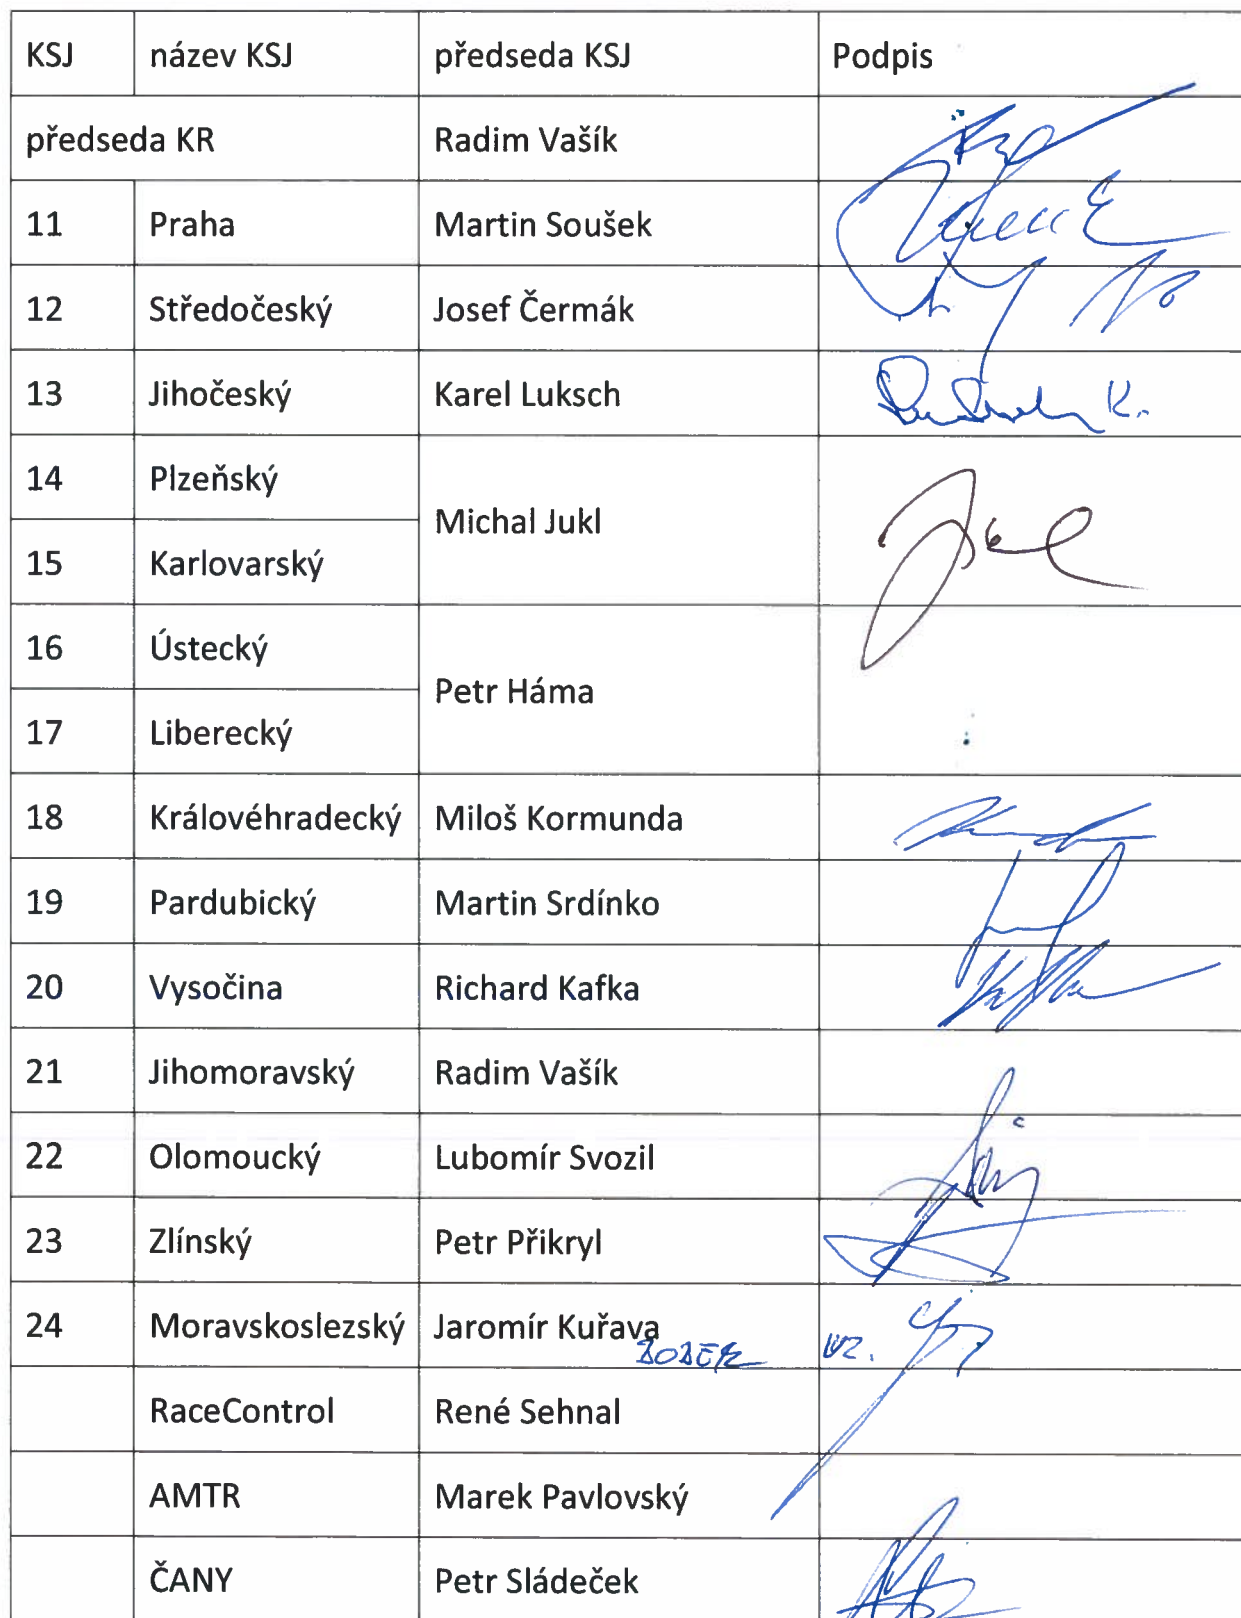 KSJ název KSJ předseda KSJ Podpis
předseda KR Radim Vašík
11 Praha Martin Soušek
12 Středočeský Josef Čermák
13 Jihočeský Karel Luksch K.
14 Plzeňský
Michal Jukl
15 Karlovarský
16 Ústecký
Petr Háma
17 Liberecký
18 Královéhradecký Miloš Kormunda
19 Pardubický Martin Srdínko
20 Vysočina Richard Kafka
21 Jihomoravský Radim Vašík
22 Olomoucký Lubomír Svozil
23 Zlínský Petr Přikryl
24 Moravskoslezský Jaromír Kuřava
RaceControl René Sehnal
AMTR Marek Pavlovský
ČANY Petr Sládeček